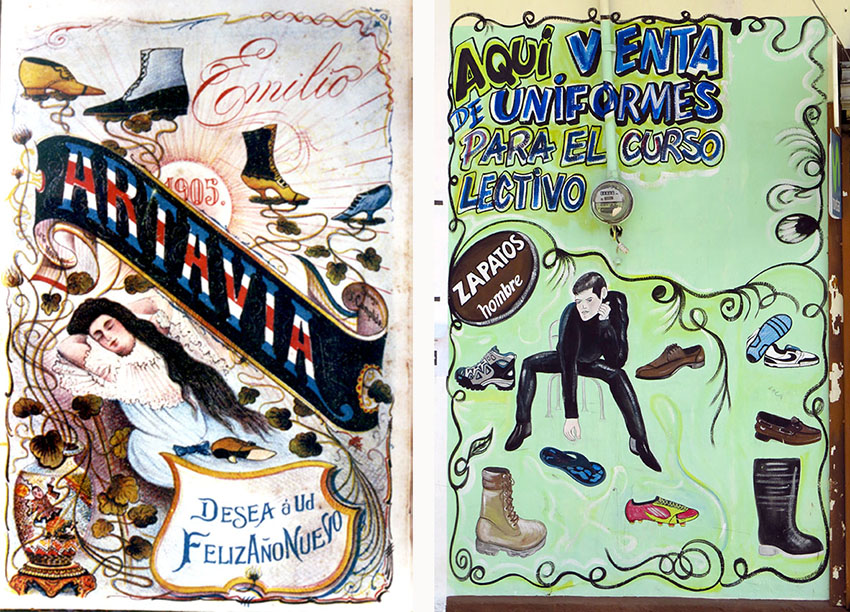 Emilio
1905.
ARTAVIA
DESEA á Ud
FELIZ AÑO NUEVO
AQUÍ VENTA
DE UNIFORMES
PARA EL CURSO
LECTIVO
ZAPATOS
hombre